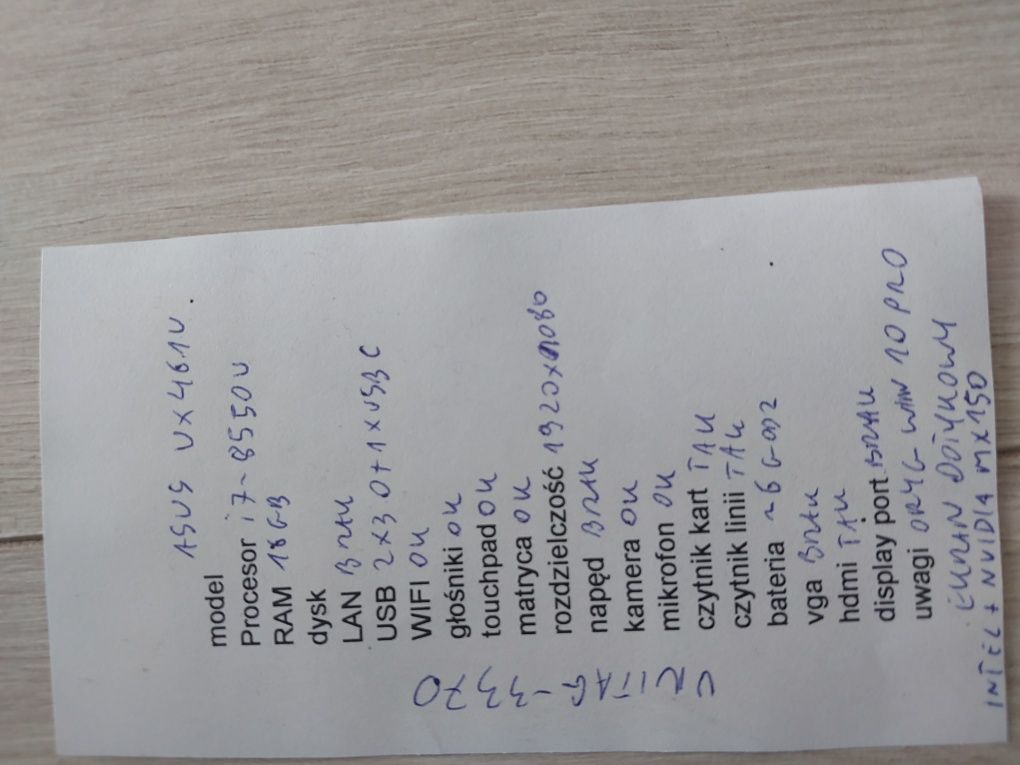 ASUS UX461U
model
Procesor i7-8550U
RAM 16GB
dysk
LAN BRAK
USB 2x3.0+1xUSB C
WIFI OK
głośniki OK
touchpad OK
matryca OK
rozdzielczość 1920x1080
napęd BRAK
kamera OK
mikrofon OK
czytnik kart TAK
czytnik linii TAK
bateria ~6 GODZ
vga BRAK
hdmi TAK
display port BRAK
uwagi ORYG WIN 10 PRO
EKRAN DOTYKOWY
INTEL + NVIDIA MX150
-3370